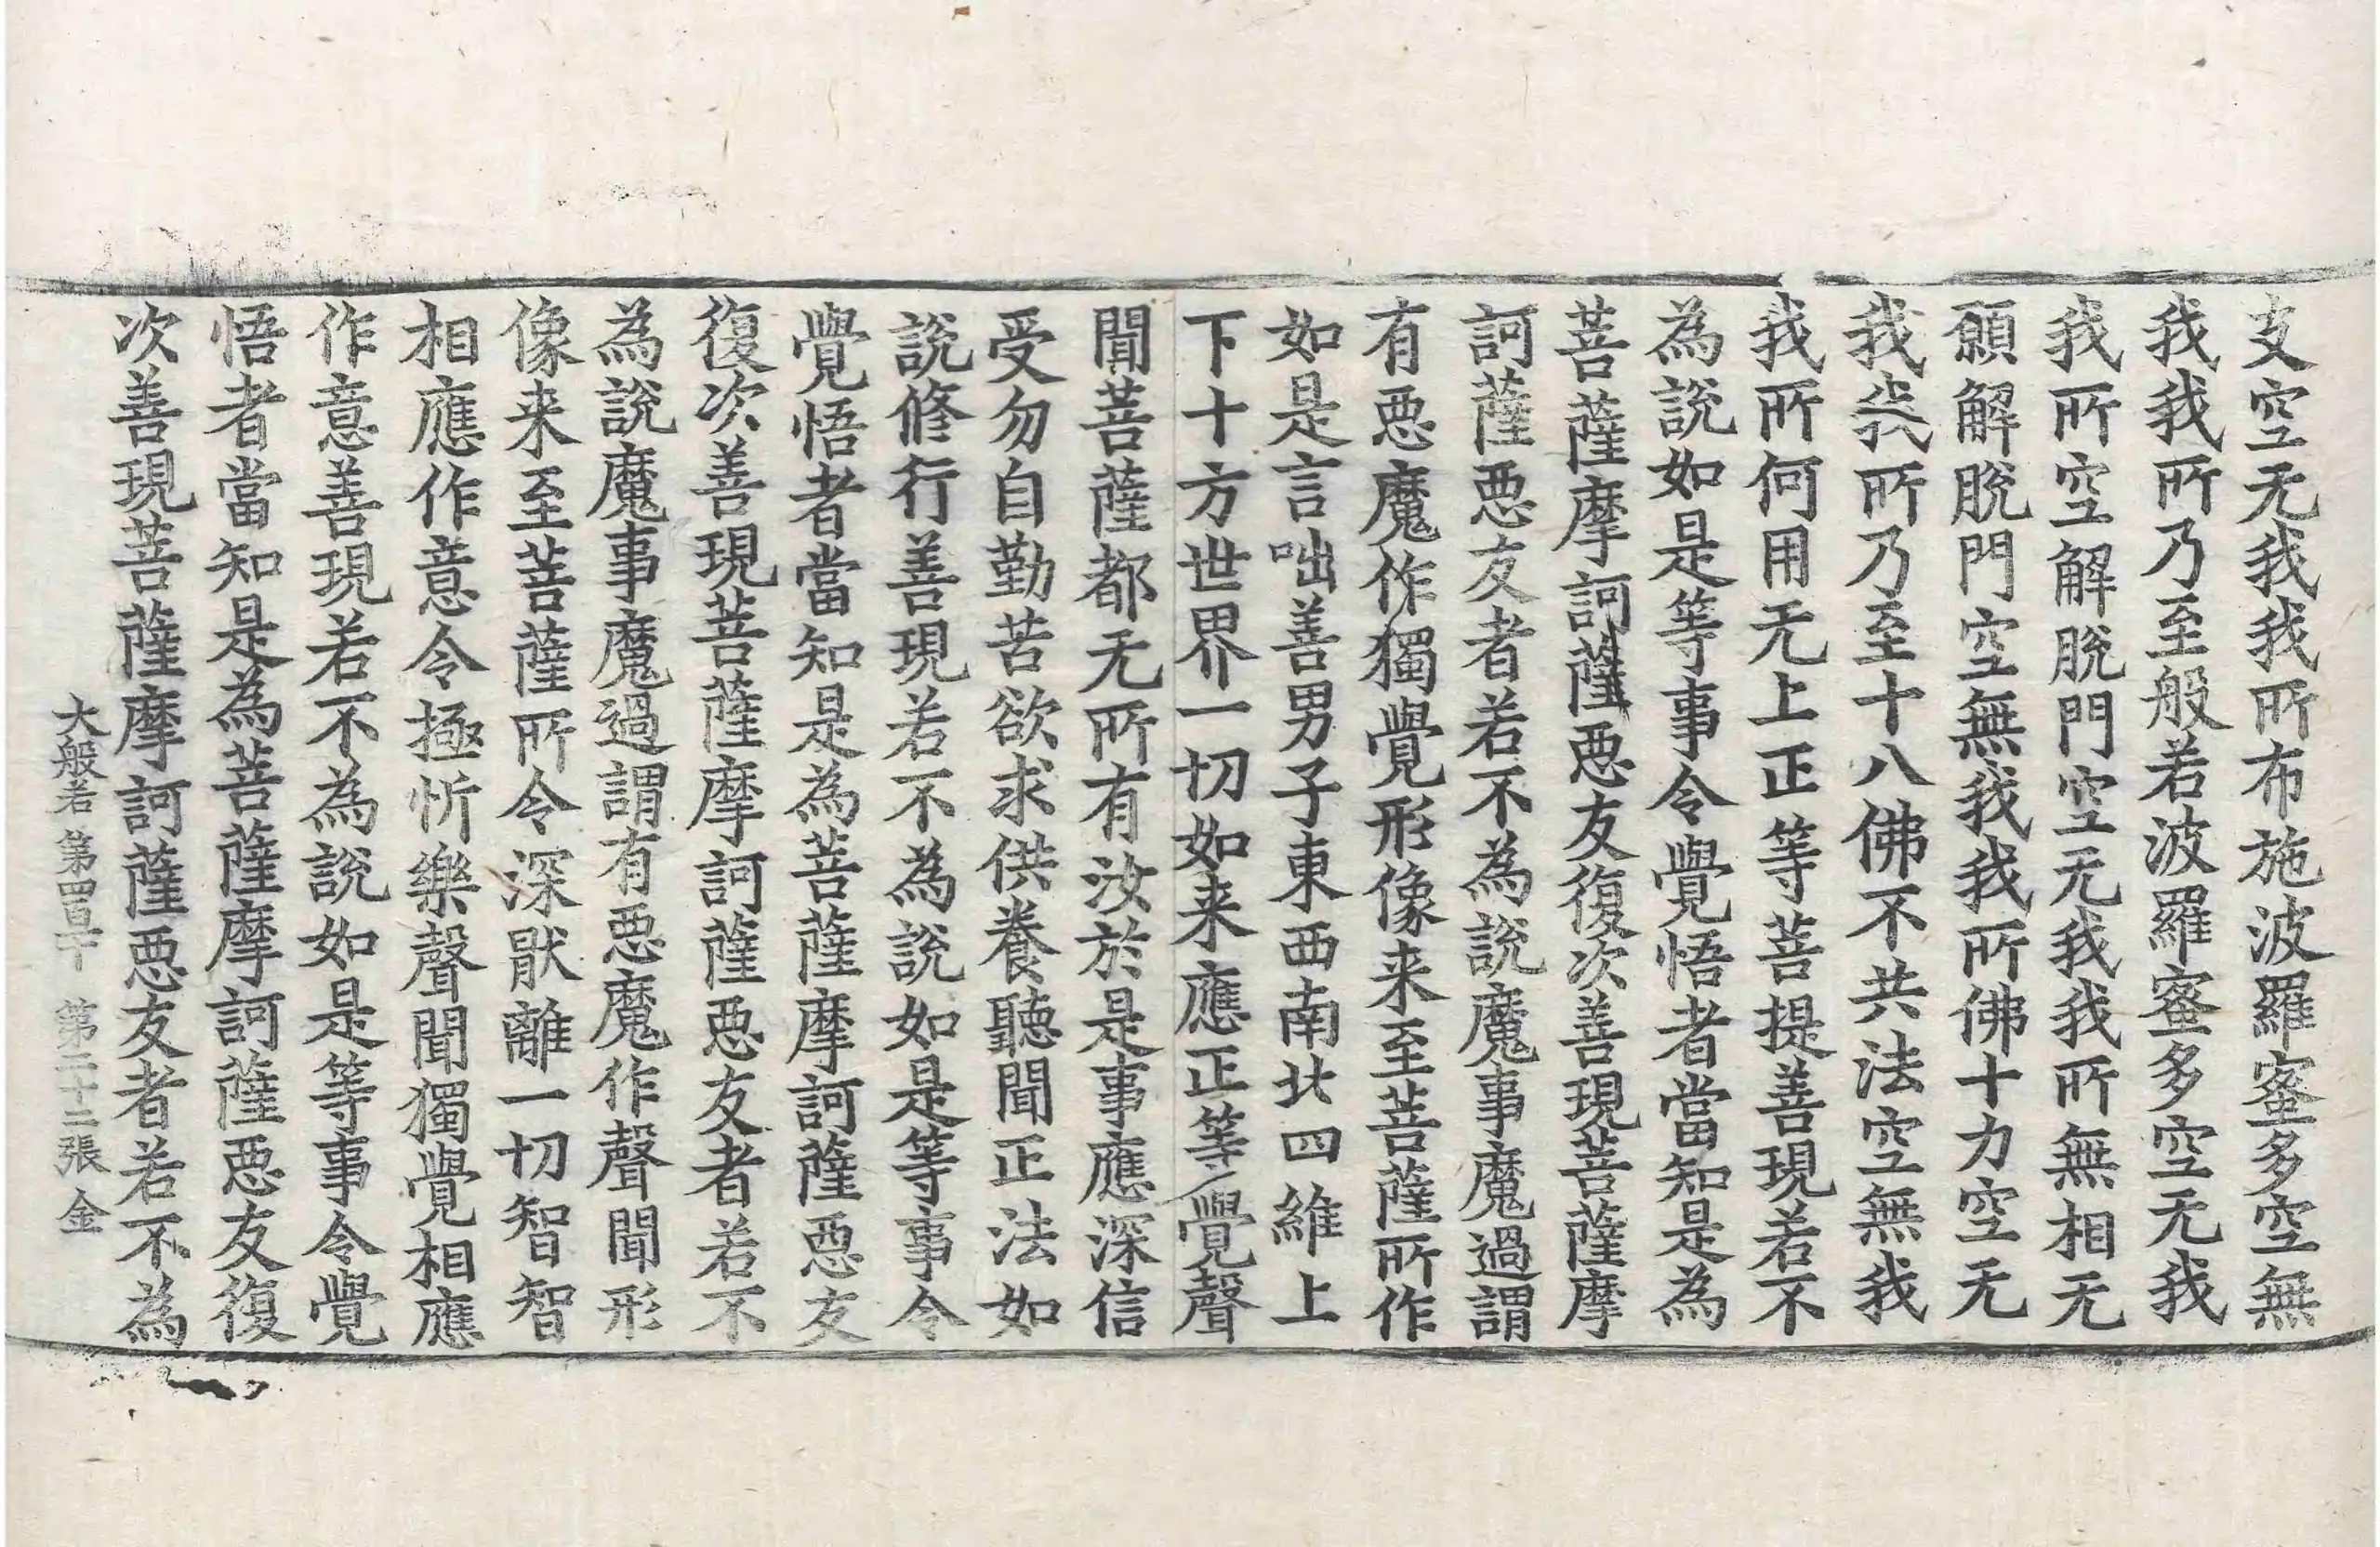 支空无我我所布施波羅蜜多空無
我我所乃至般若波羅蜜多空无我
我所空解脫門空无我我所無相无
願解脫門空無我我所佛十力空无
我我所乃至十八佛不共法空無我
我所何用无上正等菩提善現若不
為說如是等事令覺悟者當知是為
菩薩摩訶薩惡友復次善現菩薩摩
訶薩惡友者若不為說魔事魔過謂
有惡魔作獨覺形像来至菩薩所作
如是言咄善男子東西南北四維上
下十方世界一切如来應正等覺聲
聞菩薩都无所有汝於是事應深信
受勿自勤苦欲求供養聽聞正法如
說修行善現若不為說如是等事令
覺悟者當知是為菩薩摩訶薩惡友
復次善現菩薩摩訶薩惡友者若不
為說魔事魔過謂有惡魔作聲聞形
像来至菩薩所令深猒離一切智智
相應作意令極忻樂聲聞獨覺相應
作意善現若不為說如是等事令覺
悟者當知是為菩薩摩訶薩惡友復
次善現菩薩摩訶薩惡友者若不為
大般若 第四百 第二十二張 金